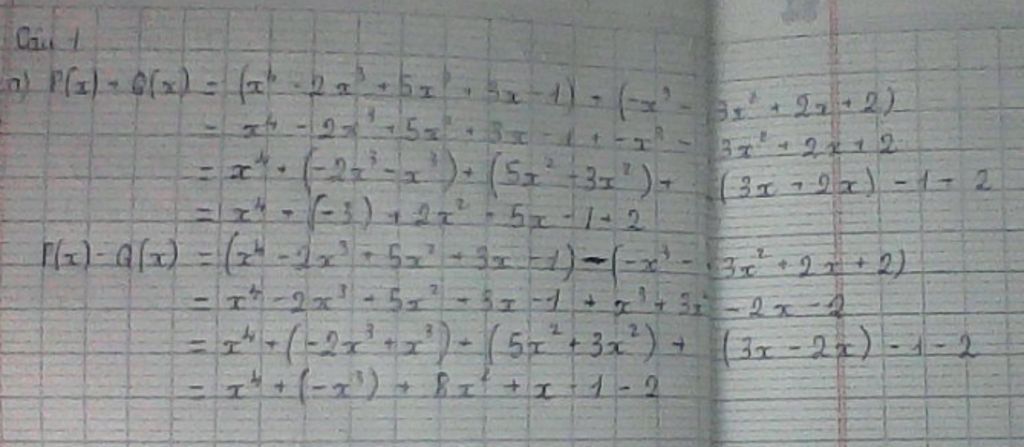 Câu 1
a) P(x) + Q(x) = (x⁴ - 2x³ + 5x² + 3x - 1) + (-x³ - 3x² + 2x + 2)
= x⁴ - 2x³ + 5x² + 3x - 1 + -x³ - 3x² + 2x + 2
= x⁴ + (-2x³ - x³) + (5x² - 3x²) + (3x + 2x) - 1 + 2
= x⁴ + (-3) + 2x² + 5x - 1 + 2
P(x) - Q(x) = (x⁴ - 2x³ + 5x² + 3x - 1) - (-x³ - 3x² + 2x + 2)
= x⁴ - 2x³ + 5x² + 3x - 1 + x³ + 3x² - 2x - 2
= x⁴ + (-2x³ + x³) + (5x² + 3x²) + (3x - 2x) - 1 - 2
= x⁴ + (-x³) + 8x² + x - 1 - 2